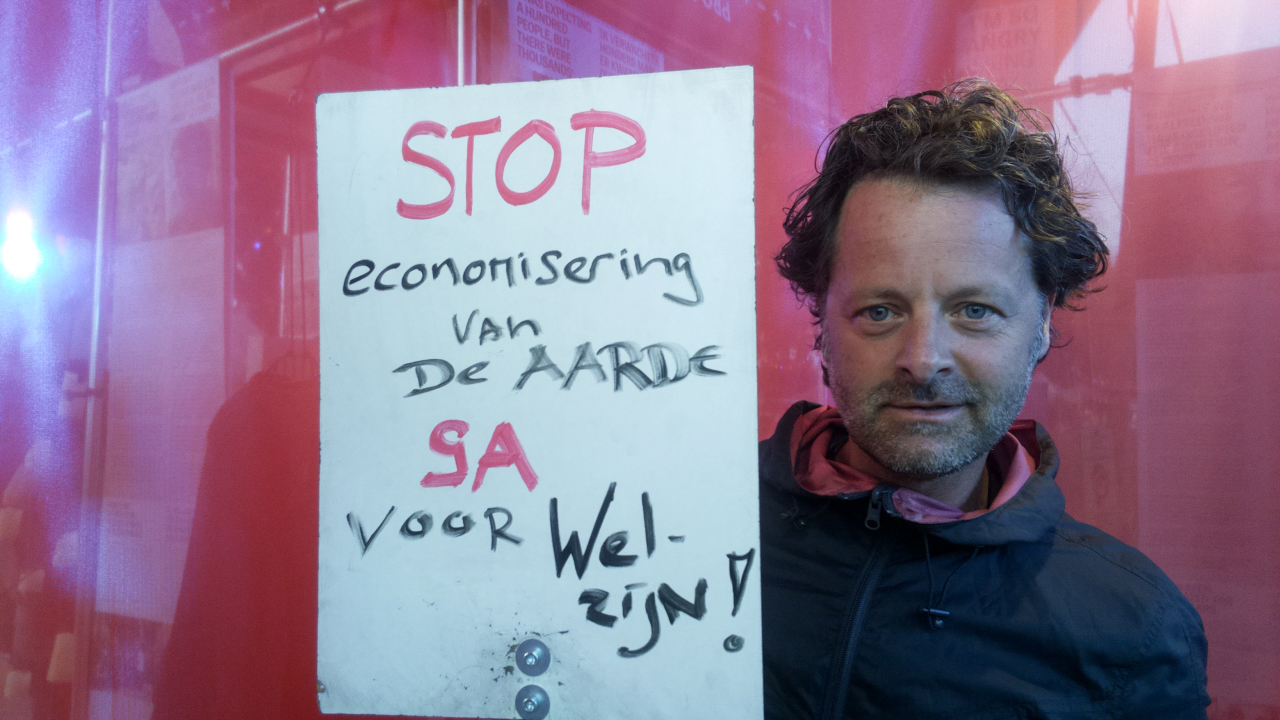 STOP
economisering
van
De AARDE
gA
VOOR Wel-
zijn!
AS EXPECTING
A HUNDRED
PEOPLE, BUT
THERE WERE
THOUSANDS